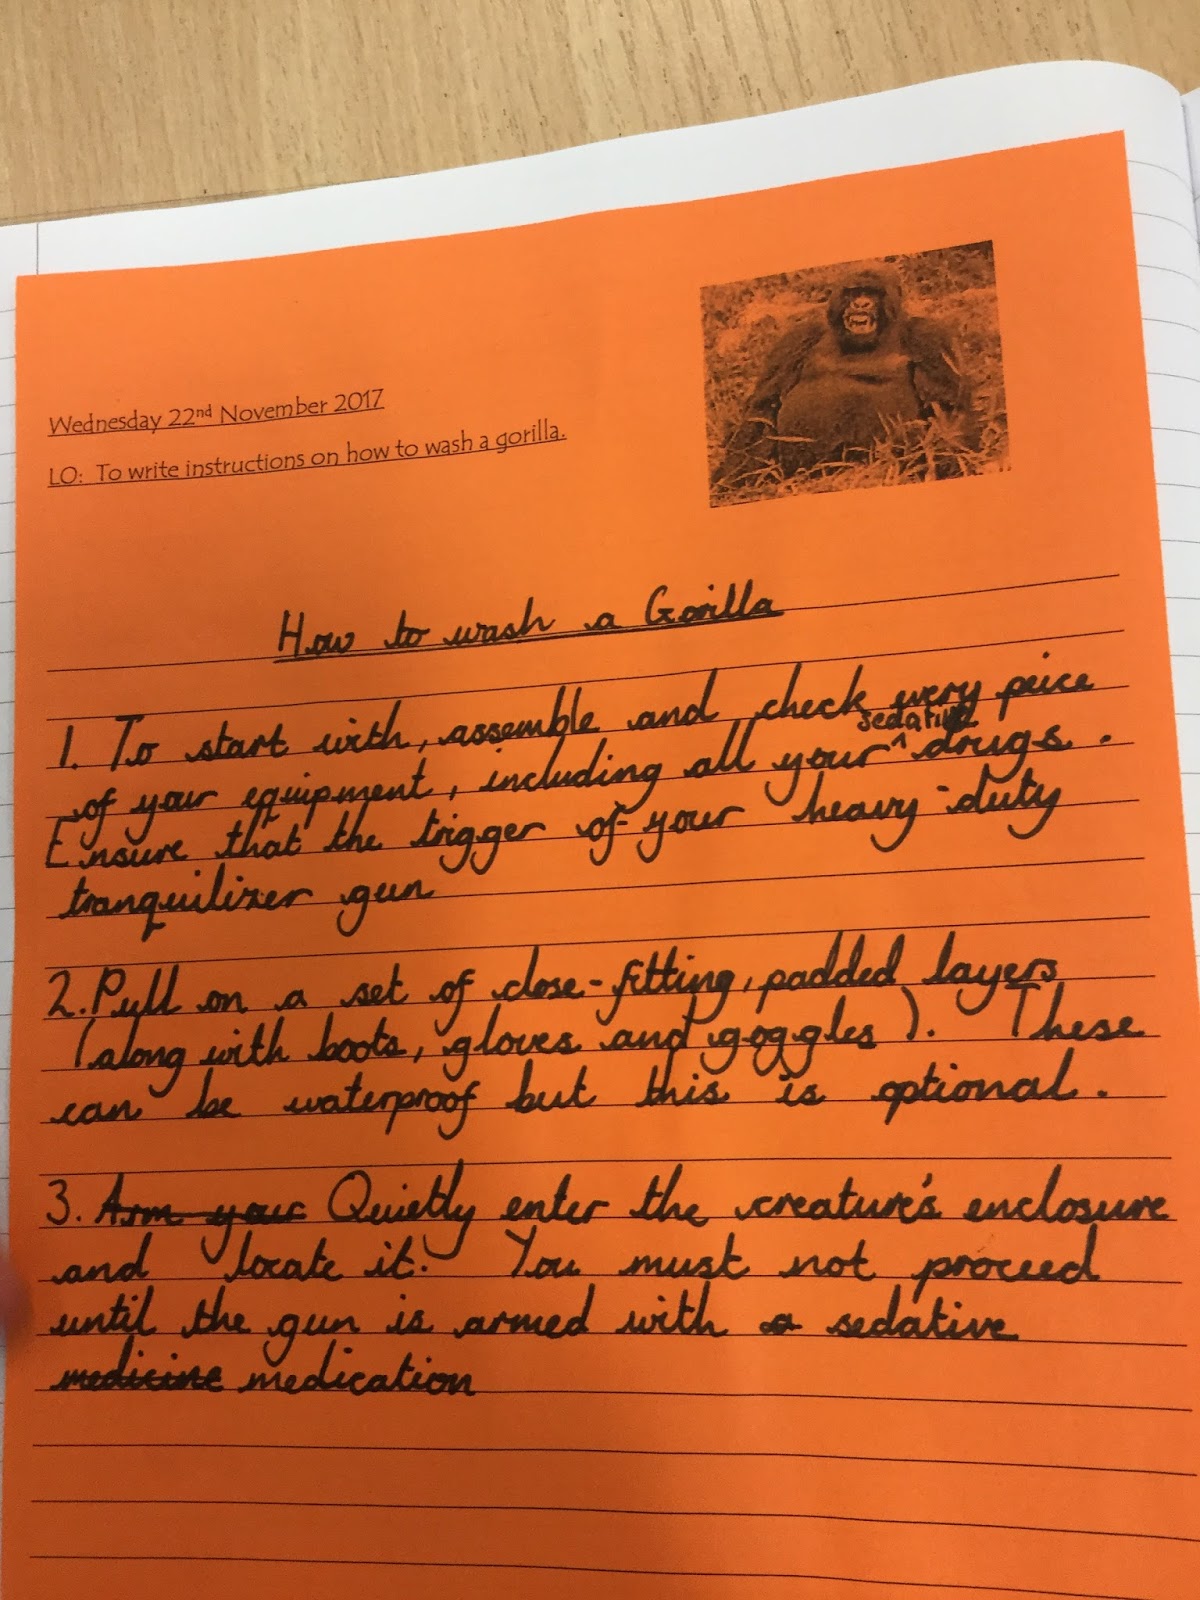 Wednesday 22nd November 2017
LO: To write instructions on how to wash a gorilla.
How to wash a Gorilla
1. To start with, assemble and check every peice
of your equipment, including all your ^sedative drugs.
Ensure that the trigger of your heavy-duty
tranquilizer gun
2. Pull on a set of close-fitting, padded layers
(along with boots, gloves and goggles). These
can be waterproof but this is optional.
3. Arm your Quietly enter the creature's enclosure
and locate it. You must not proceed
until the gun is armed with a sedative
medicine medication